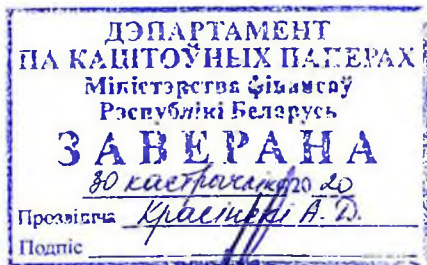 ДЭПАРТАМЕНТ
ПА КАШТОЎНЫХ ПАПЕРАХ
Міністэрства фінансаў
Рэспублікі Беларусь
ЗАВЕРАНА
30 кастрычніка 2020
Прозвішча Красінскі А. Д.
Подпіс